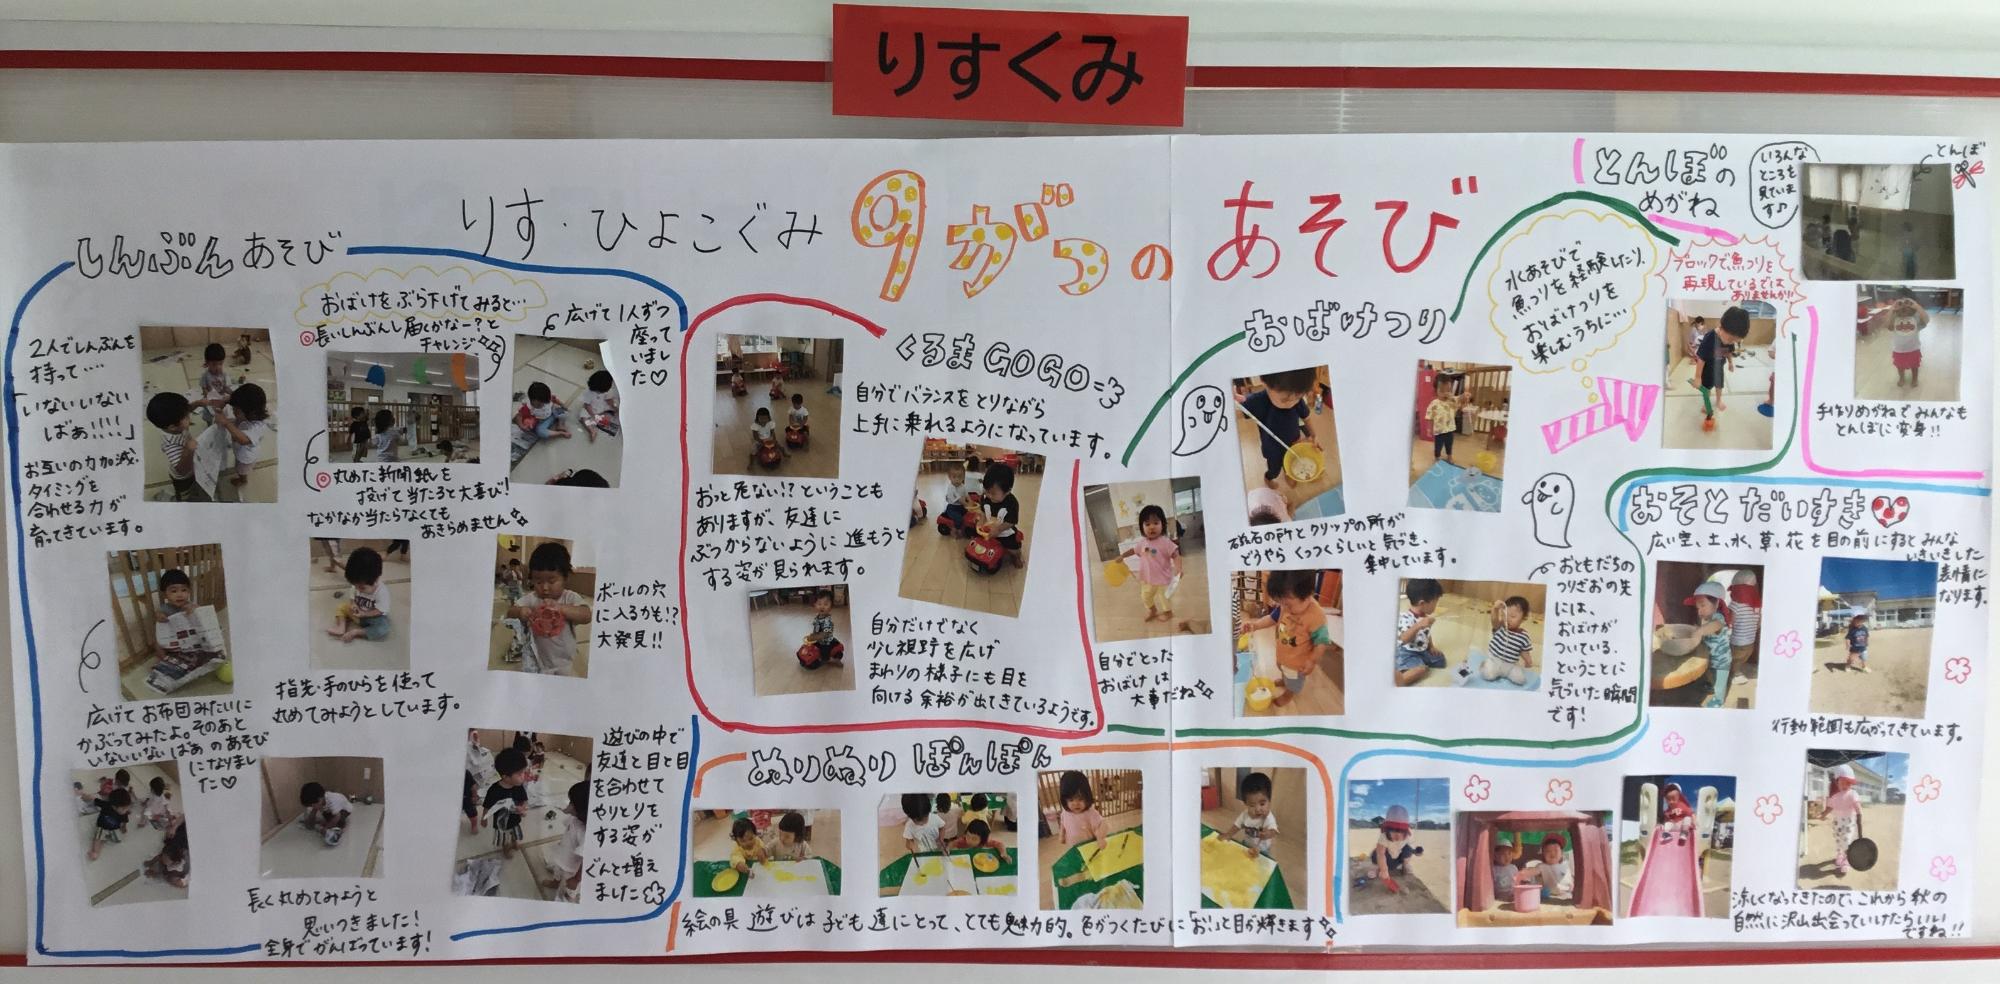 りすくみ
りす・ひよこぐみ 9がつのあそび
しんぶんあそび
2人でしんぶんを
持って....
「いないいない
ばぁ!!!!」
お互いの力加減・
タイミングを
合わせる力が
育ってきています。
おばけをぶら下げてみると…
◎長いしんぶんし届くかなー?と
チャレンジ
◎丸めた新聞紙を
投げて当たると大喜び!
なかなか当たらなくても
あきらめません
広げて1人ずつ
座って
いまし
た♡
広げてお布団みたいに
かぶってみたよ。そのあと
いないいないばぁのあそび
になりまし
た♡
指先・手のひらを使って
丸めてみようとしています。
ボールの穴
に入るかも!?
大発見!!
長く丸めてみようと
思いつきました!
全身でがんばっています!
遊びの中で
友達と目と目
を合わせて
やりとりを
する姿が
ぐんと増え
ました
くるまGOGO
自分でバランスをとりながら
上手に乗れるようになっています。
おっと危ない!?ということも
ありますが、友達に
ぶつからないように進もうと
する姿が見られます。
自分だけでなく
少し視野を広げ
まわりの様子にも目を
向ける余裕が出てきているようです。
おばけつり
水あそびで
魚つりを経験したり、
おばけつりを
楽しむうちに…
ブロックで魚つりを
再現しているでは
ありませんか!!
磁石の所とクリップの所が
どうやらくっつくらしいと気づき、
集中しています。
自分でとった
おばけは
大事だね
おともだちの
つりざおの先
には、
おばけが
ついている.
ということに
気づいた瞬間
です!
とんぼの
めがね
いろんな
ところを
見ていま
す♪
とんぼ
手作りめがねでみんなも
とんぼに変身!!
おそとだいすき
広い空、土、水、草、花を目の前にするとみんな
いきいきした
表情に
なります。
行動範囲も広がってきています。
涼しくなってきたので、これから秋の
自然に沢山出会っていけたらいい
ですね!!
ぬりぬりぽんぽん
絵の具遊びは子ども達にとって、とても魅力的。色がつくたびに「おぉ」っと目が輝きます